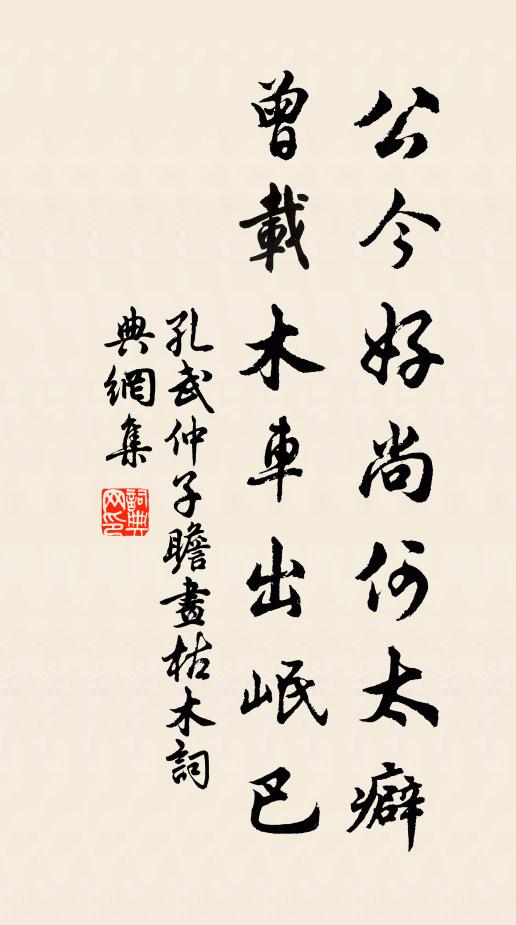 公今好尚何太癖
曾載木車出岷巴
孔武仲子瞻畫枯木詞
典網集
詞典網印